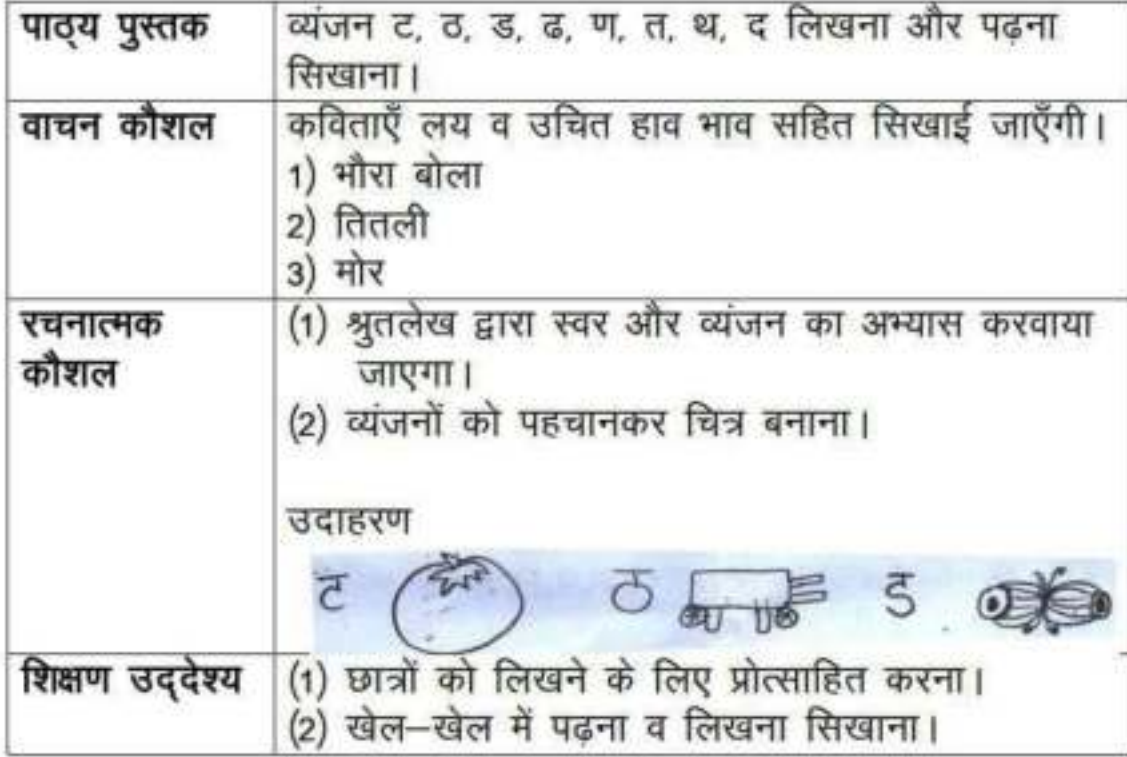 पाठ्य पुस्तक
व्यंजन ट, ठ, ड, ढ, ण, त, थ, द लिखना और पढ़ना
सिखाना।
वाचन कौशल
कविताएँ लय व उचित हाव भाव सहित सिखाई जाएँगी।
1) भौरा बोला
2) तितली
3) मोर
रचनात्मक
कौशल
(1) श्रुतलेख द्वारा स्वर और व्यंजन का अभ्यास करवाया
जाएगा।
(2) व्यंजनों को पहचानकर चित्र बनाना।
उदाहरण
ट ठ ड
शिक्षण उद्‌देश्य
(1) छात्रों को लिखने के लिए प्रोत्साहित करना।
(2) खेल–खेल में पढ़ना व लिखना सिखाना।